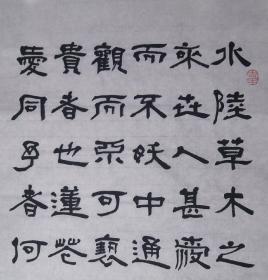 水陸草木之
來世人甚愛
而不妖中通
觀而不可褻
貴者也蓮花
愛同予者何